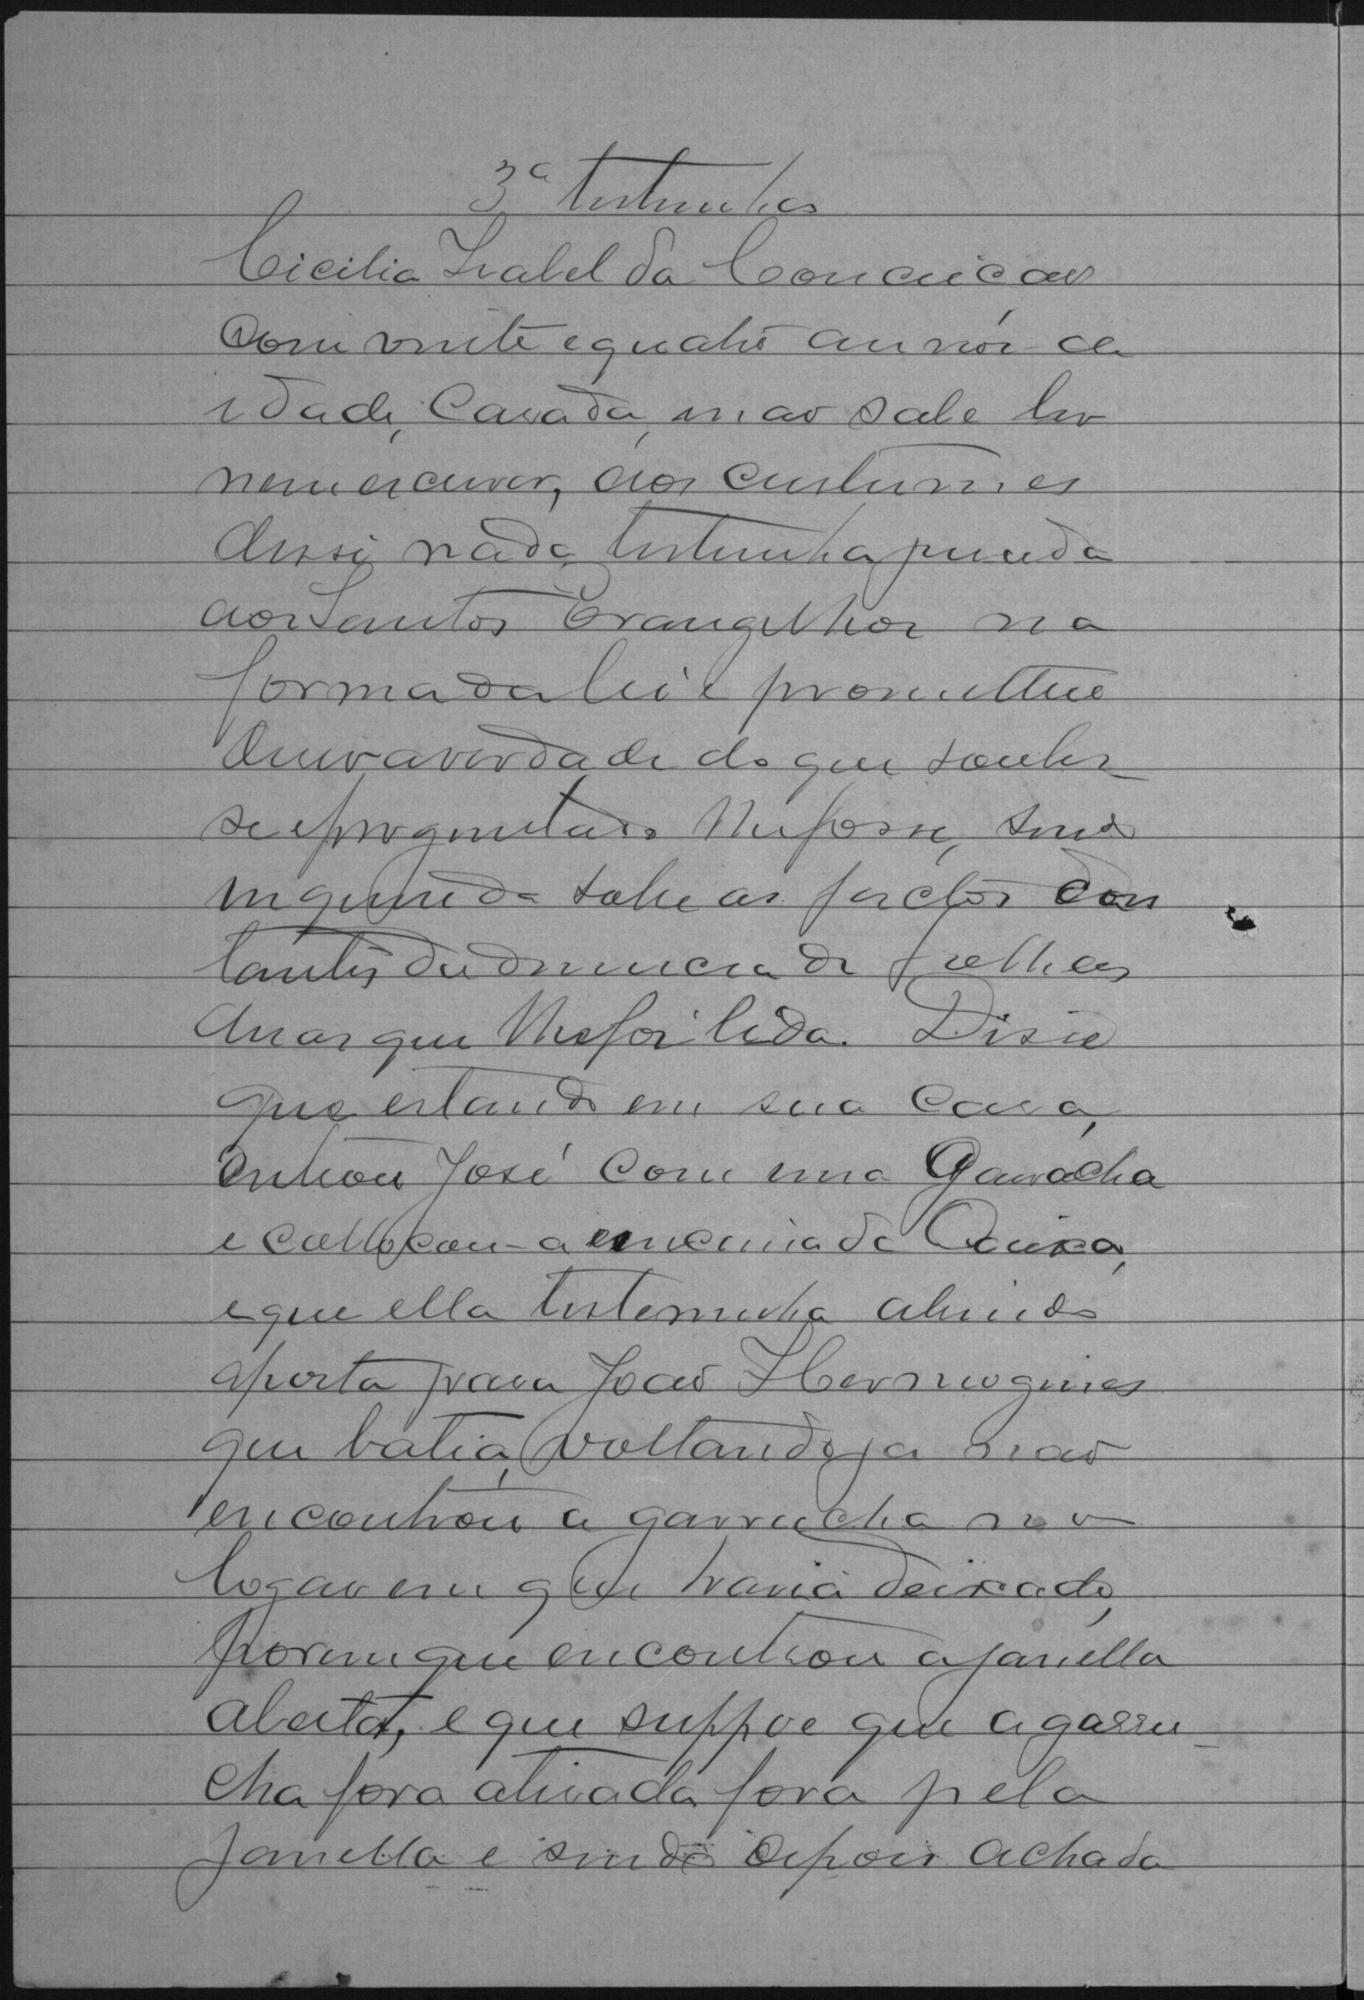 3ª testemunha
Cicilia Izabel da Conceicão
com vinte e quatro annos de
idade, casada, não sabe ler
nem escrever, aos custumes
disse nada, testemunha jurada
aos Santos Evangelhos na
forma da lei e prometteu
dizer a verdade do que souber
se e preguntado lhe fosse, sendo
inquerida sobre os factos cons
tantes da denuncia de folhas
duas que lhe foi lida. Disse
que estando em sua casa,
entrou José com uma Garrucha
e collocou-a em cima da Caixa,
e que ella testemunha abrindo
a porta para João Hermogines
que batia, voltando ja não
encontrou a garrucha no
logar em que havia deixado,
porem que encontrou a janella
aberta, e que suppoe que a garru-
cha fora atirada fora pela
janella e sendo depois achada